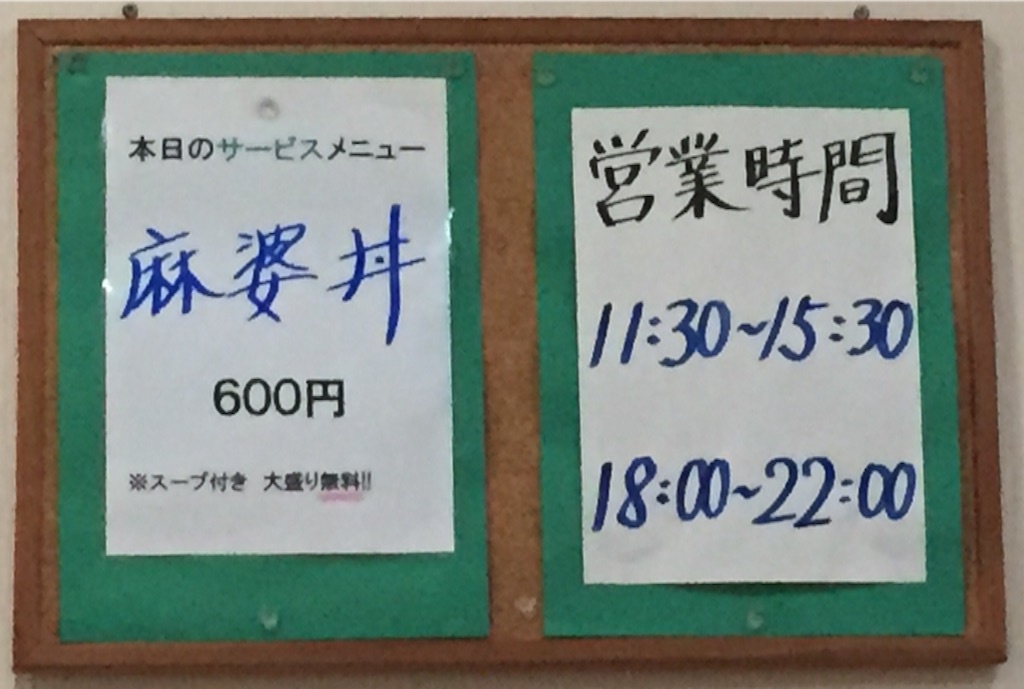 本日のサービスメニュー
麻婆丼
600円
※スープ付き 大盛り無料!!
営業時間
11:30~15:30
18:00~22:00